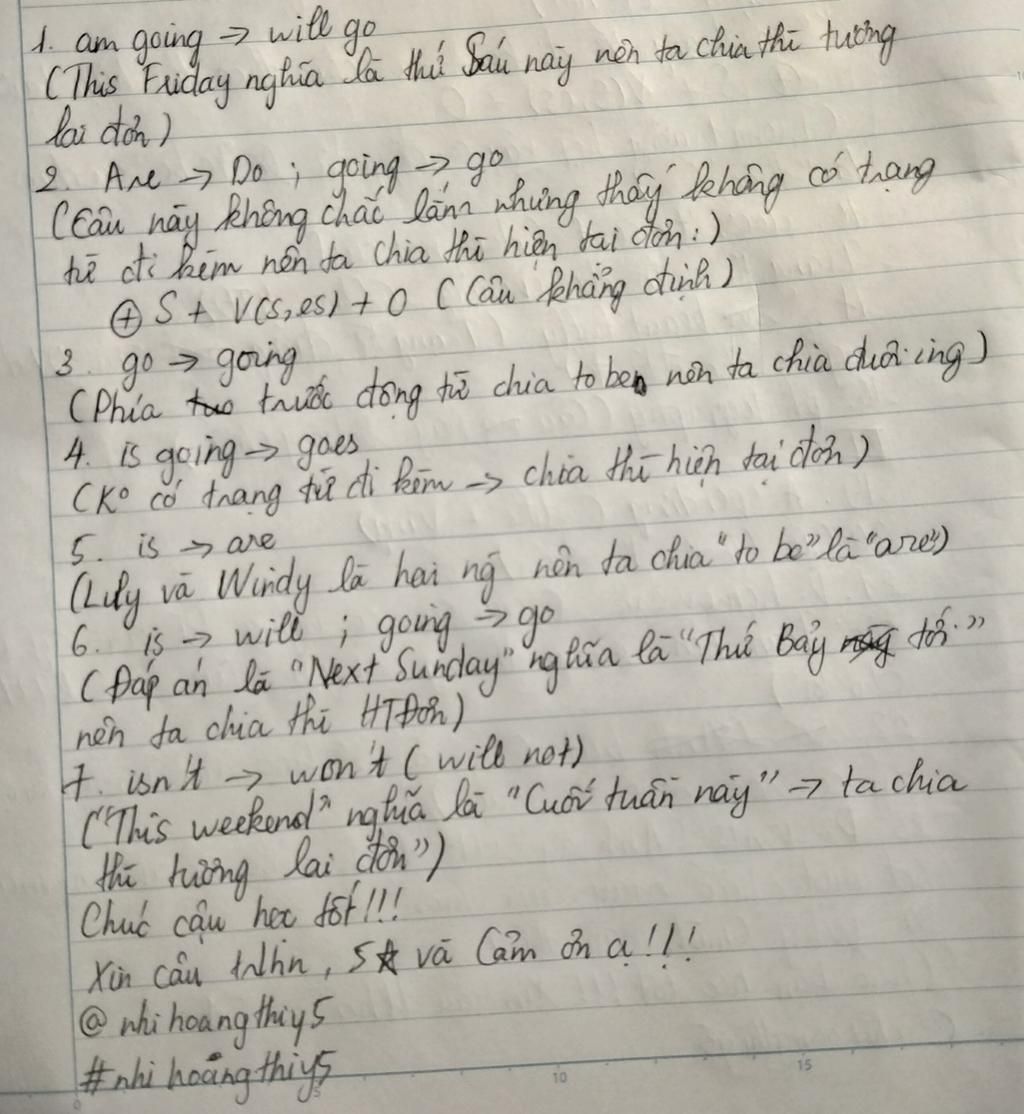 1. am going → will go
(This Friday nghĩa là thứ Sáu này nên ta chia thì tương
lai đơn)
2. Are → Do ; going → go
(Câu này không chắc lắm nhưng thấy không có trạng
từ đi kèm nên ta chia thì hiện tại đơn:)
(+) S + V(s,es) + O (Câu khẳng định)
3. go → going
(Phía trước động từ chia to be nên ta chia đuôi ing)
4. is going → goes
(K° có trạng từ đi kèm → chia thì hiện tại đơn)
5. is → are
(Lily và Windy là hai ng nên ta chia "to be" là "are")
6. is → will ; going → go
(Đáp án là "Next Sunday" nghĩa là "Thứ Bảy tới."
nên ta chia thì HTĐơn)
7. isn't → won't (will not)
("This weekend" nghĩa là "Cuối tuần này" → ta chia
thì tương lai đơn")
Chúc cậu học tốt!!!
Xin câu trlhn, 5☆ và Cảm ơn ạ!!!
@nhihoangthiy5
#nhihoangthiy5
5
10
15